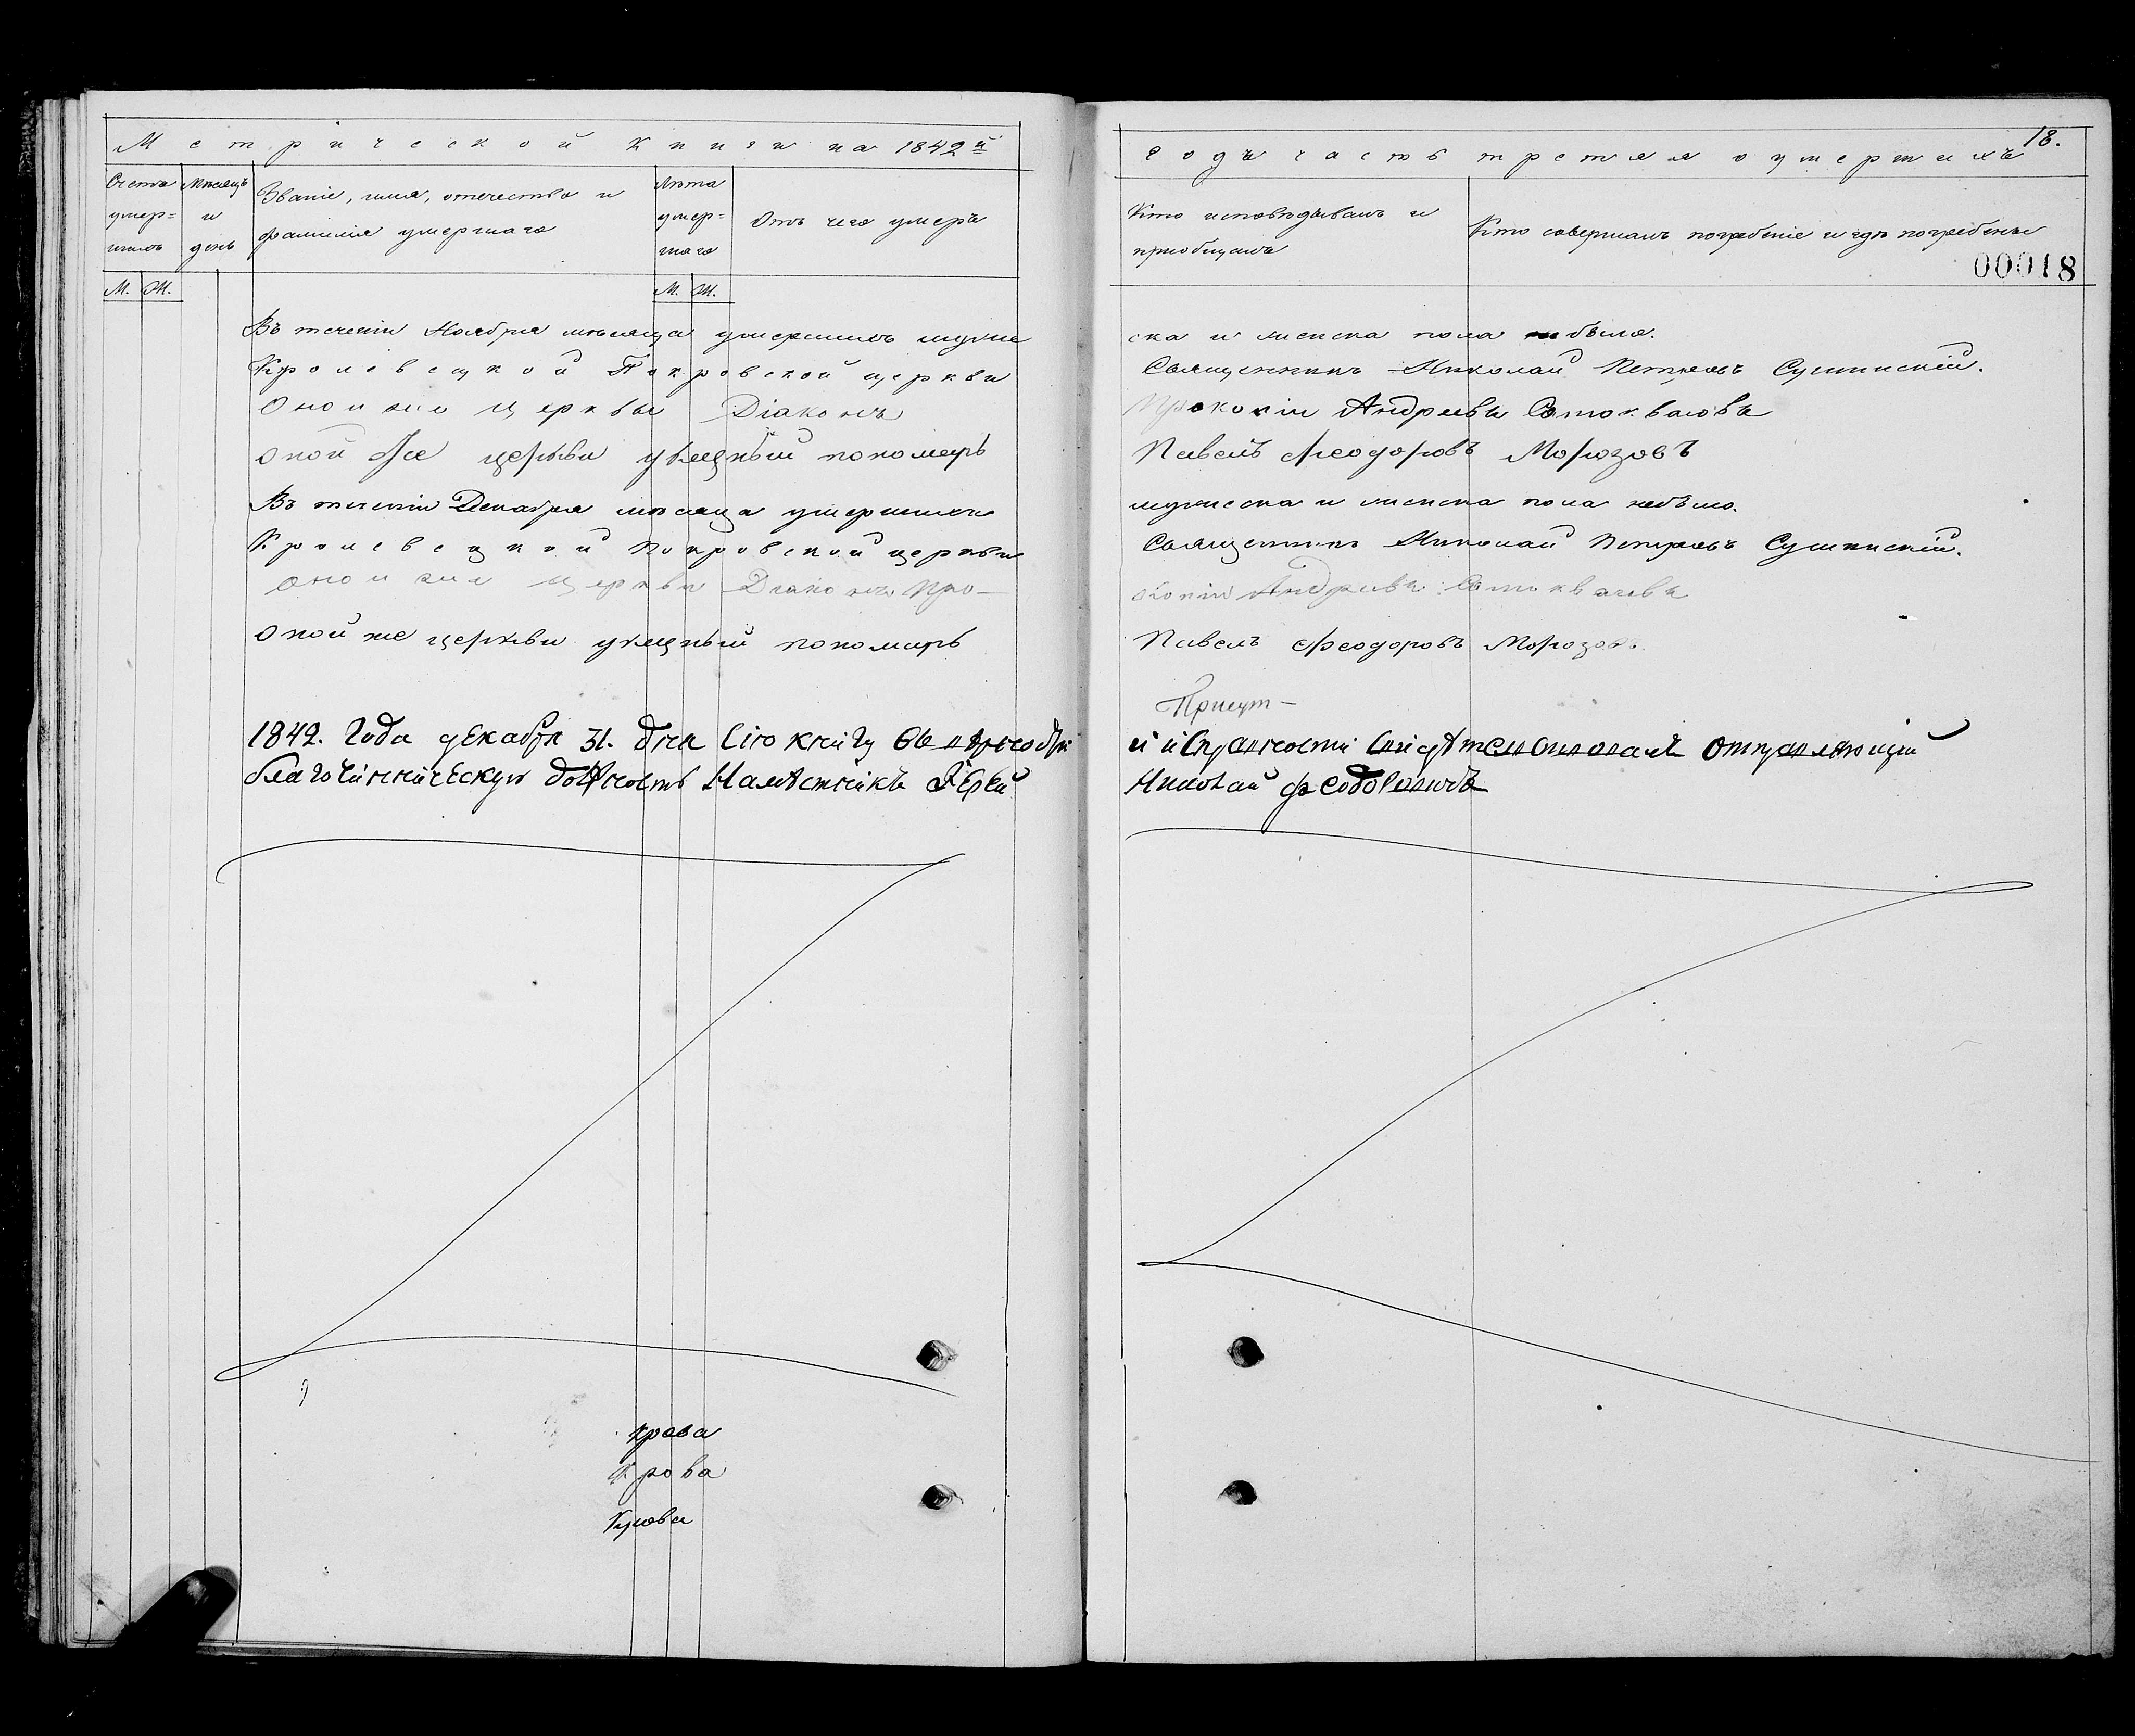 Метрической Книги на 1842й
Годъ часть третяя о умершихъ
18.
Счетъ умершихъ
Мѣсяцъ и день
Званіе, имя, отечество и фамилія умершаго
Лѣта умершаго
Отъ чего умеръ
Кто исповѣдывалъ и пріобщалъ
Кто совершалъ погребеніе и гдѣ погребены
00018
М. Ж.
М. Ж.
Въ теченіи Ноября мѣсяца умершихъ муже
ска и женска пола небыло.
Кролевецкой Покровской церкви
Священникъ Николай Петровъ Сушинскій.
Оной же церкви Діаконъ
Прокопій Андреевъ Самоквасовъ
Оной же церкви указный пономарь
Павелъ Феодоровъ Морозовъ
Въ теченіи Декабря мѣсяца умершихъ
мужеска и женска пола небыло.
Кролевецкой Покровской церкви
Священникъ Николай Петровъ Сушинскій.
Оной же церкви Діаконъ Про-
копій Андреевъ
Оной же церкви указный пономарь
Павелъ Феодоровъ Морозовъ.
Присут-
1842. Года декабря 31. дня сію книгу
и исправности свидѣтелствовалъ отправляющій
благочинническую должность Намѣстникъ Іерей
Николай
Крова
Крова